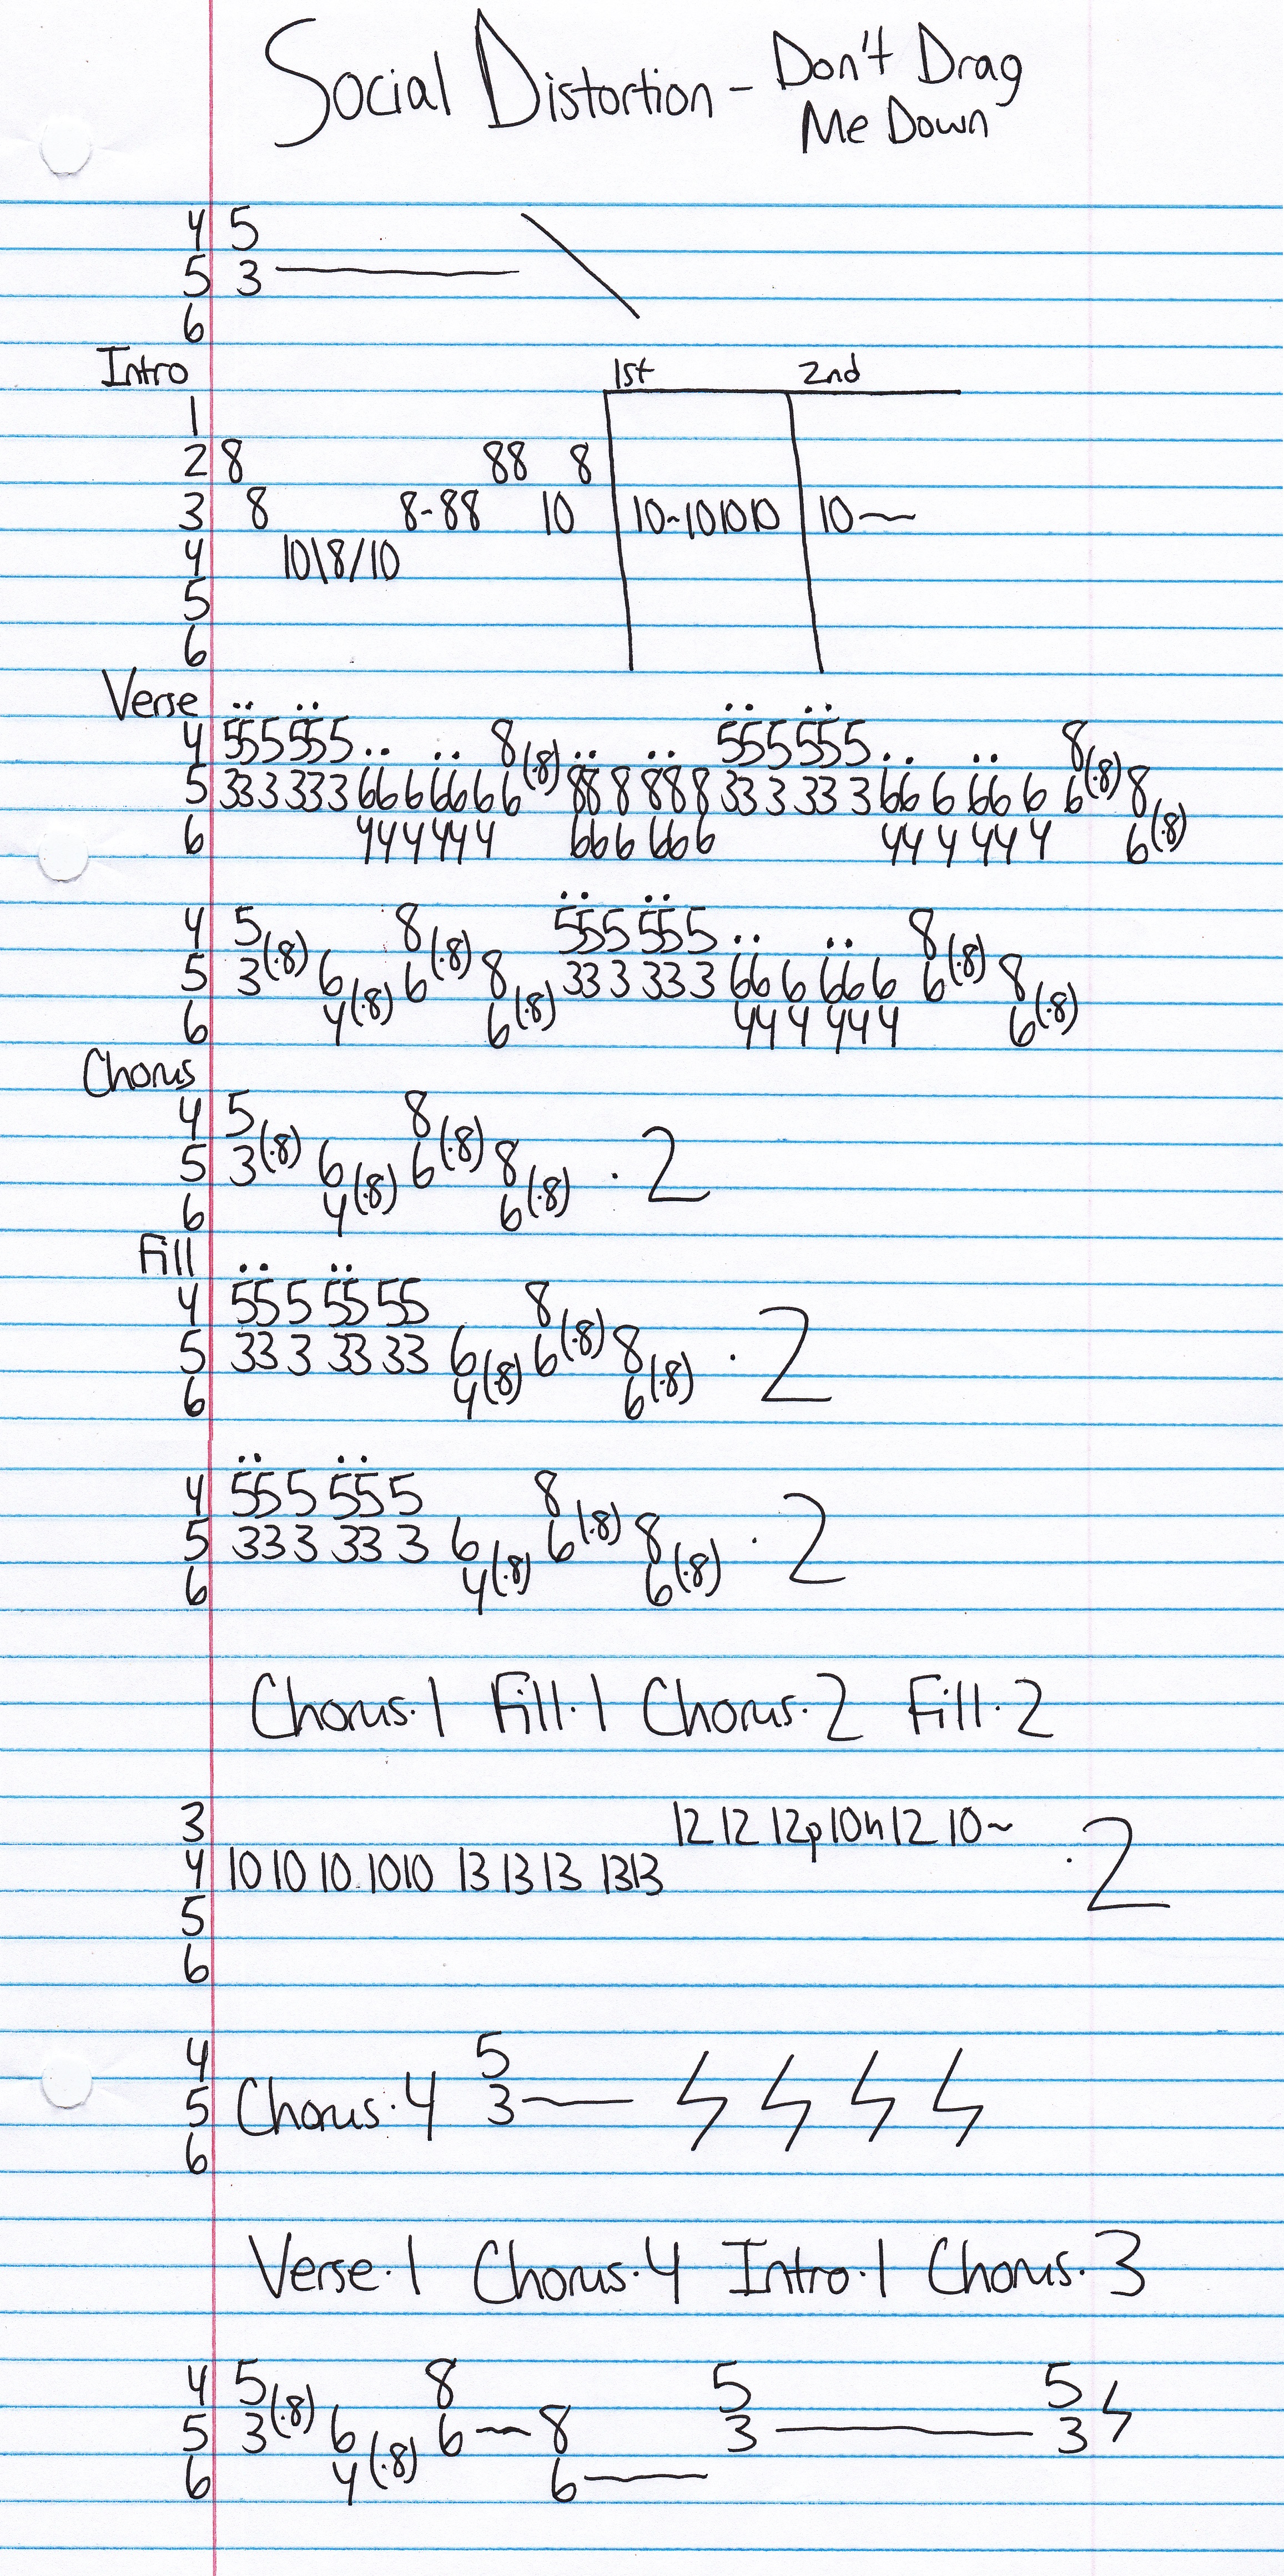 Social Distortion - Don't Drag
Me Down
4 5
5 3 ———
6
Intro 1st 2nd
1
2 8 88 8
3 8 8-88 10 10~101010 10~
4 10\8/10
5
6
Verse
4 555555 8 555555 8
5 333333 666666 6(·8) 888888 333333 666666 6(·8) 8
6 444444 666666 444444 6(·8)
4 5 8 555555 8
5 3(·8) 6 6(·8) 8 333333 666666 6(·8) 8
6 4(·8) 6(·8) 444444 6(·8)
Chorus
4 5 8
5 3(·8) 6 6(·8) 8 · 2
6 4(·8) 6(·8)
Fill
4 55 5 55 55 8
5 33 3 33 33 6 6(·8) 8 · 2
6 4(·8) 6(·8)
4 55 5 55 5 8
5 33 3 33 3 6 6(·8) 8 · 2
6 4(·8) 6(·8)
Chorus·1 Fill·1 Chorus·2 Fill·2
3 12 12 12p10h12 10~
4 10 10 10 1010 13 13 13 1313 · 2
5
6
4 5
5 Chorus·4 3 ——
6
Verse·1 Chorus·4 Intro·1 Chorus·3
4 5 8 5 5
5 3(·8) 6 6 — 8 3 ——— 3
6 4(·8) 6 ——